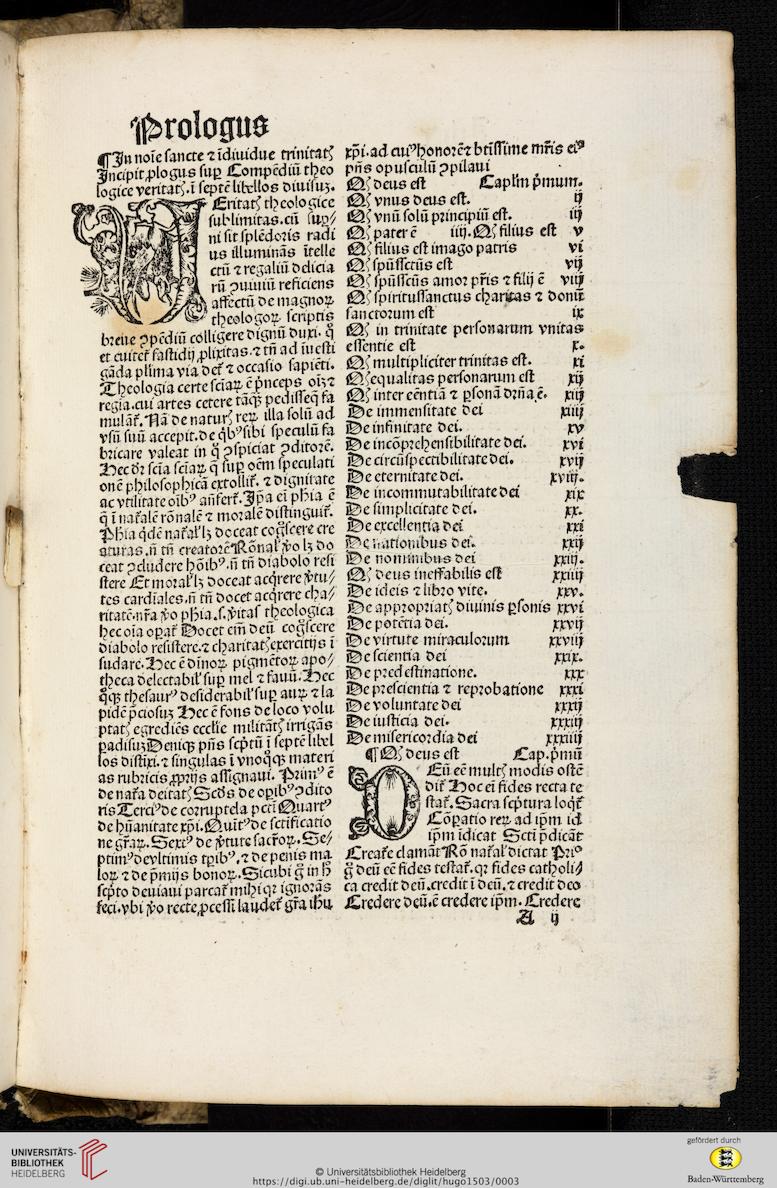 Prologus
¶ In noīe sancte ⁊ īdiuidue trinitatꝭ
Incipit ꝓlogus suꝑ Compēdiū theo
logice veritatꝭ.ī septē libellos diuisuꝫ.
VEritatꝭ theologice
sublimitas.cū suꝑ⸗
ni sit splēdoris radi
us illuminās ītelle
ctū ⁊ regaliū delicia
rū ꝯuiuiū reficiens
affectū de magnoꝝ
theologoꝝ scriptis
breue ꝯpēdiū colligere dignū duxi. q̊
et euitet̄ fastidij ꝓlixitas.⁊ tn̄ ad iuesti
gāda pl'ima via det̄ ⁊ occasio sapiēti.
Theologia certe sciaꝝ ē p̄nceps oīꝫ ⁊
regia.cui artes cetere tāqꝫ pedisseq̄ fa
mulāt̄. Nā de naturꝭ reꝝ illa solū ad
vsū suū accepit.de q̇bꝰ sibi speculū fa
bricare valeat in q̊ ꝯspiciat ꝯditorē.
Hec dr̄ scīa sciaꝝ q̄ suꝑ oēm speculati
onē philosophicā extollit̄. ⁊ dignitate
ac vtilitate oībꝰ anfert̄. Ip̄a ei phīa ē
q̄ ī nat̄alē rōnalē ⁊ moralē distinguit̄.
Phīa q̇dē nat̄al' lꝫ doceat cogscere cre
aturas.n̄ tn̄ creatorē Rōnal' ꝟo lꝫ do
ceat ꝯcludere hōībꝰ.n̄ tn̄ diabolo resi
stere Et moral' lꝫ doceat acq̇rere ꝟtu⸗
tes cardiales.n̄ tn̄ docet acq̇rere cha⸗
ritatē.nr̄a ꝟo phīa.s.ꝟitas theologica
hec oīa oꝑat̄ Docet em̄ deū cogscere
diabolo resistere.⁊ charitatꝭ exercitijs ī
sudare. Hec ē dīnoꝝ pigmētoꝝ apo⸗
theca delectabil' suꝑ mel ⁊ fauū. Hec
q̊qꝫ thesaurꝰ desiderabil' suꝑ auꝝ ⁊ la
pidē p̄ciosuꝫ Hec ē fons de loco volu
ptatꝭ egrediēs ecclie militātꝭ irrigās
ꝑadisuꝫ Deniqꝫ pn̄s scp̄tū ī septē libel
los distīxi.⁊ singulas ī vnoq̊qꝫ materi
as rubricis ꝓprijs assignaui. Primꝰ ē
de nat̄a deitatꝭ Scd's de oꝑibꝰ ꝯdito
ris Terciꝰ de corruptela pctī Quartꝰ
de hūanitate xp̄i. Quītꝰ de sctificatio
ne gr̄aꝝ. Sextꝰ de ꝟtute sacr̄oꝝ. Se⸗
ptimꝰ de vltimis tꝑibꝰ.⁊ de penis ma
loꝝ ⁊ de p̄mijs bonoꝝ. Sicubi g̊ in h̄
scp̄to deuiaui parcat̄ mihi qr ignorās
feci.vbi ꝟo recte ꝓcessi laudet̄ gr̄a ihu
xp̄i.ad cuiꝰ honorē ⁊ bt̄issime mr̄is eiꝰ
pn̄s opusculū ꝯpilaui
Qꝭ deus est Capl'm p̄mum.
Qꝭ vnus deus est. ij
Qꝭ vnū solū principiū est. iij
Qꝭ pater ē iiij. Qꝭ filius est v
Qꝭ filius est imago patris vi
Qꝭ spūssctūs est vij
Qꝭ spūsscūs amor pr̄is ⁊ filij ē viij
Qꝭ spiritussanctus charitas ⁊ donū
sanctorum est ix
Qꝭ in trinitate personarum vnitas
essentie est x.
Qꝭ multipliciter trinitas est. xi
Qꝭ equalitas personarum est xij
Qꝭ inter eēntiā ⁊ ꝑsonā drn̄a ē. xiij
De immensitate dei xiiij
De infinitate dei. xv
De incōprehensibilitate dei. xvi
De circūspectibilitate dei. xvij
De eternitate dei. xviij.
De incommutabilitate dei xix
De simplicitate dei. xx.
De excellentia dei xxi
De nationibus dei. xxij
De nominibus dei xxiij.
Qꝭ deus ineffabilis est xxiiij
De ideis ⁊ libro vite. xxv.
De appropriatꝭ diuinis ꝑsonis xxvi
De potētia dei. xxvij
De virtute miraculorum xxviij
De scientia dei xxix.
De predestinatione. xxx
De prescientia ⁊ reprobatione xxxi
De voluntate dei xxxij
De iusticia dei. xxxiij
De misericordia dei xxxiiij
¶ Qꝭ deus est Cap.p̄mū
DEū eē multꝭ modis ostē
dit̄ Hoc ei fides recta te
stat̄. Sacra scp̄tura loqt̄
Cōꝑatio reꝝ ad ip̄m id
ip̄m īdicat Sctī p̄dicāt
Creat̄e clamāt Rō nat̄al' dictat Priº
g̊ deū eē fides testat̄.qr fides catholi⸗
ca credit deū.credit ī deū.⁊ credit deo
Credere deū.ē credere ip̄m. Credere
A ij
UNIVERSITÄTS-
BIBLIOTHEK
HEIDELBERG
© Universitätsbibliothek Heidelberg
https://digi.ub.uni-heidelberg.de/diglit/hugo1503/0003
gefördert durch
Baden-Württemberg